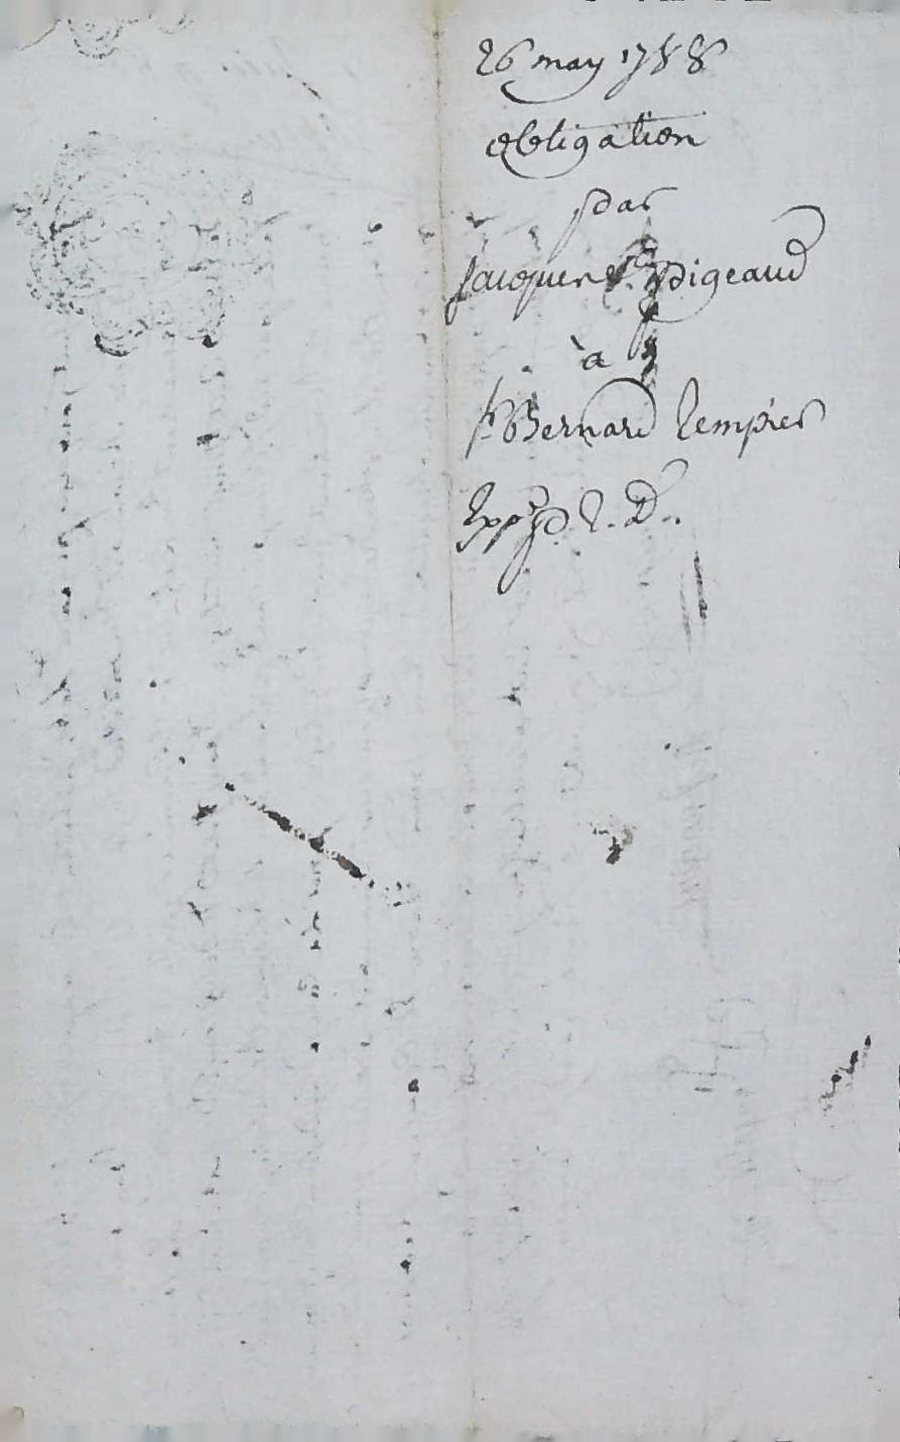 26 may 1788
obligation
par
Jacques Pigeaud
à
Sr Bernard Tempier
Expd